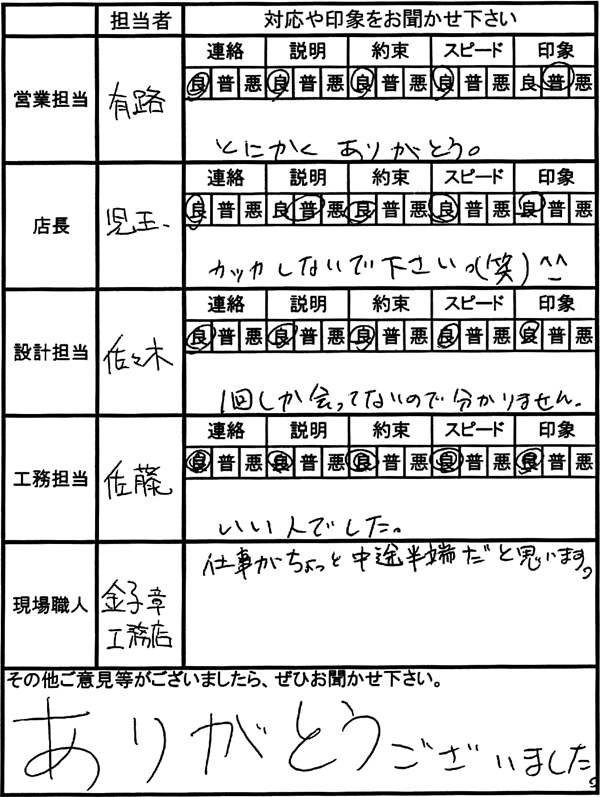 担当者 対応や印象をお聞かせ下さい
連絡 説明 約束 スピード 印象
営業担当 有路 良 普 悪 良 普 悪 良 普 悪 良 普 悪 良 普 悪
とにかく ありがとう。
連絡 説明 約束 スピード 印象
店長 児玉、 良 普 悪 良 普 悪 良 普 悪 良 普 悪 良 普 悪
カッカしないで下さいっ(笑) ^^
連絡 説明 約束 スピード 印象
設計担当 佐々木 良 普 悪 良 普 悪 良 普 悪 良 普 悪 良 普 悪
1回しか会ってないので分かりません。
連絡 説明 約束 スピード 印象
工務担当 佐藤 良 普 悪 良 普 悪 良 普 悪 良 普 悪 良 普 悪
いい人でした。
現場職人 金子章
工務店
仕事がちょっと中途半端だと思います。
その他ご意見等がございましたら、ぜひお聞かせ下さい。
ありがとうございました。